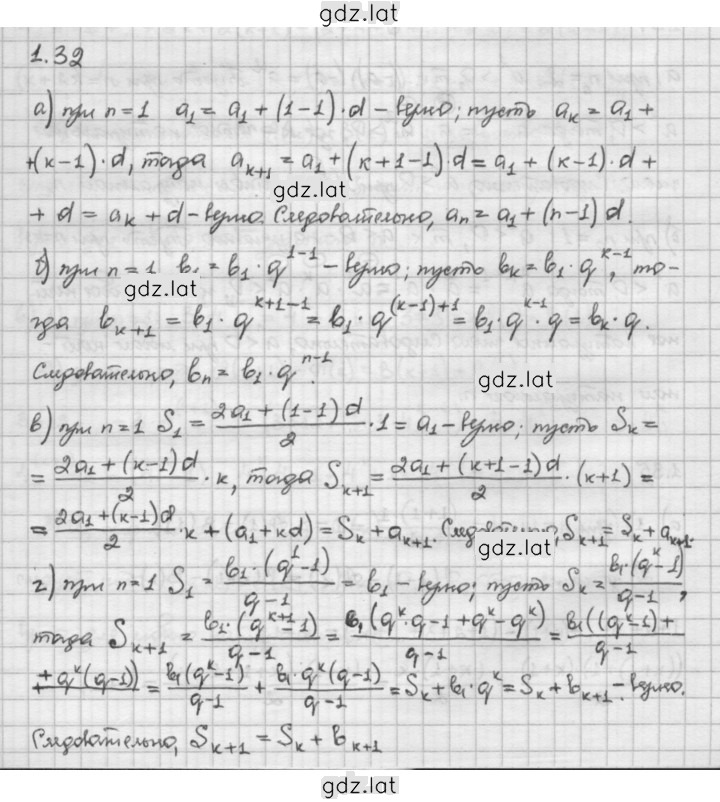 gdz.lat
1.32
а) при n=1 a₁ = a₁ + (1-1)·d – верно; пусть aₖ = a₁ +
+(k-1)·d, тогда aₖ₊₁ = a₁+(k+1-1)·d = a₁ + (k-1)·d +
gdz.lat
+ d = aₖ + d – верно. Следовательно, aₙ = a₁ + (n-1)d.
б) при n=1 b₁ = b₁·q¹⁻¹ – верно; пусть bₖ = b₁·qᵏ⁻¹, то-
gdz.lat
гда bₖ₊₁ = b₁·qᵏ⁺¹⁻¹ = b₁·q⁽ᵏ⁻¹⁾⁺¹ = b₁·qᵏ⁻¹·q = bₖ·q.
Следовательно, bₙ = b₁·qⁿ⁻¹.
gdz.lat
в) при n=1 S₁ = (2a₁ + (1-1)d)/2 · 1 = a₁ – верно; пусть Sₖ =
= (2a₁ + (k-1)d)/2 · k, тогда Sₖ₊₁ = (2a₁ + (k+1-1)d)/2 · (k+1) =
= (2a₁+(k-1)d)/2 · k + (a₁+kd) = Sₖ + aₖ₊₁. Следовательно, Sₖ₊₁ = Sₖ + aₖ₊₁.
gdz.lat
г) при n=1 S₁ = b₁·(q¹-1)/(q-1) = b₁ – верно; пусть Sₖ = b₁·(qᵏ-1)/(q-1),
тогда Sₖ₊₁ = b₁·(qᵏ⁺¹-1)/(q-1) = b₁(qᵏ·q-1+qᵏ-qᵏ)/(q-1) = b₁((qᵏ-1)+/(q-1)
+qᵏ(q-1)) = b₁(qᵏ-1)/(q-1) + b₁·qᵏ(q-1)/(q-1) = Sₖ+b₁·qᵏ = Sₖ + bₖ₊₁ – верно.
Следовательно, Sₖ₊₁ = Sₖ + bₖ₊₁
gdz.lat